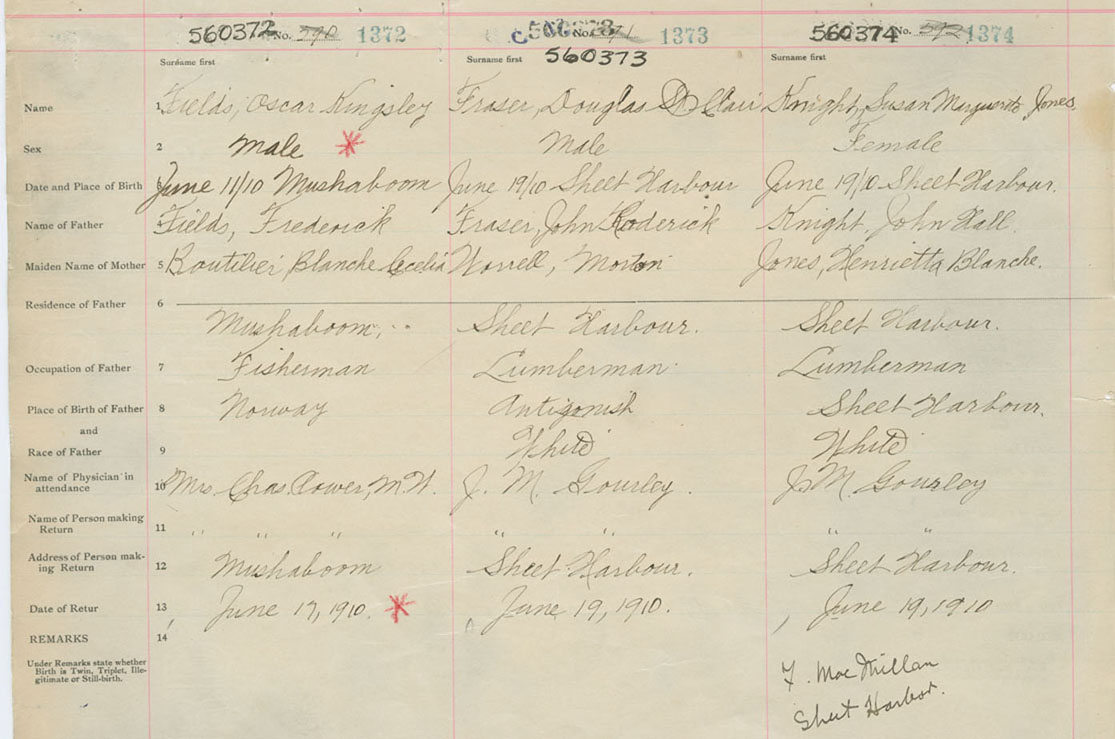 560372 No. 1372 560373 No. 1373 560374 No. 1374
560373
Surname first Surname first Surname first
Name 1 Fields, Oscar Kingsley Fraser, Douglas St Clair Knight, Susan Marguerite Jones,
Sex 2 Male * Male Female
Date and Place of Birth June 11/10 Mushaboom June 19/10 Sheet Harbour June 19/10 Sheet Harbour.
Name of Father Fields, Frederick Fraser, John Roderick Knight, John Hall.
Maiden Name of Mother 5 Boutilier Blanche Cecelia Worrell, Morton Jones, Henrietta Blanche.
Residence of Father 6
Mushaboom, Sheet Harbour. Sheet Harbour.
Occupation of Father 7 Fisherman Lumberman Lumberman
Place of Birth of Father 8 Norway Antigonish Sheet Harbour.
and
Race of Father 9 White White
Name of Physician in
attendance 10 Mrs Chas. M.W. J. M. Gourley. J. M. Gourley
Name of Person making
Return 11 " " " " " " "
Address of Person mak-
ing Return 12 Mushaboom Sheet Harbour. Sheet Harbour.
Date of Retur 13 June 17, 1910. * June 19, 1910. June 19, 1910
REMARKS 14
Under Remarks state whether
Birth is Twin, Triplet, Ille-
gitimate or Still-birth.
F. MacMillan
Sheet Harbor.